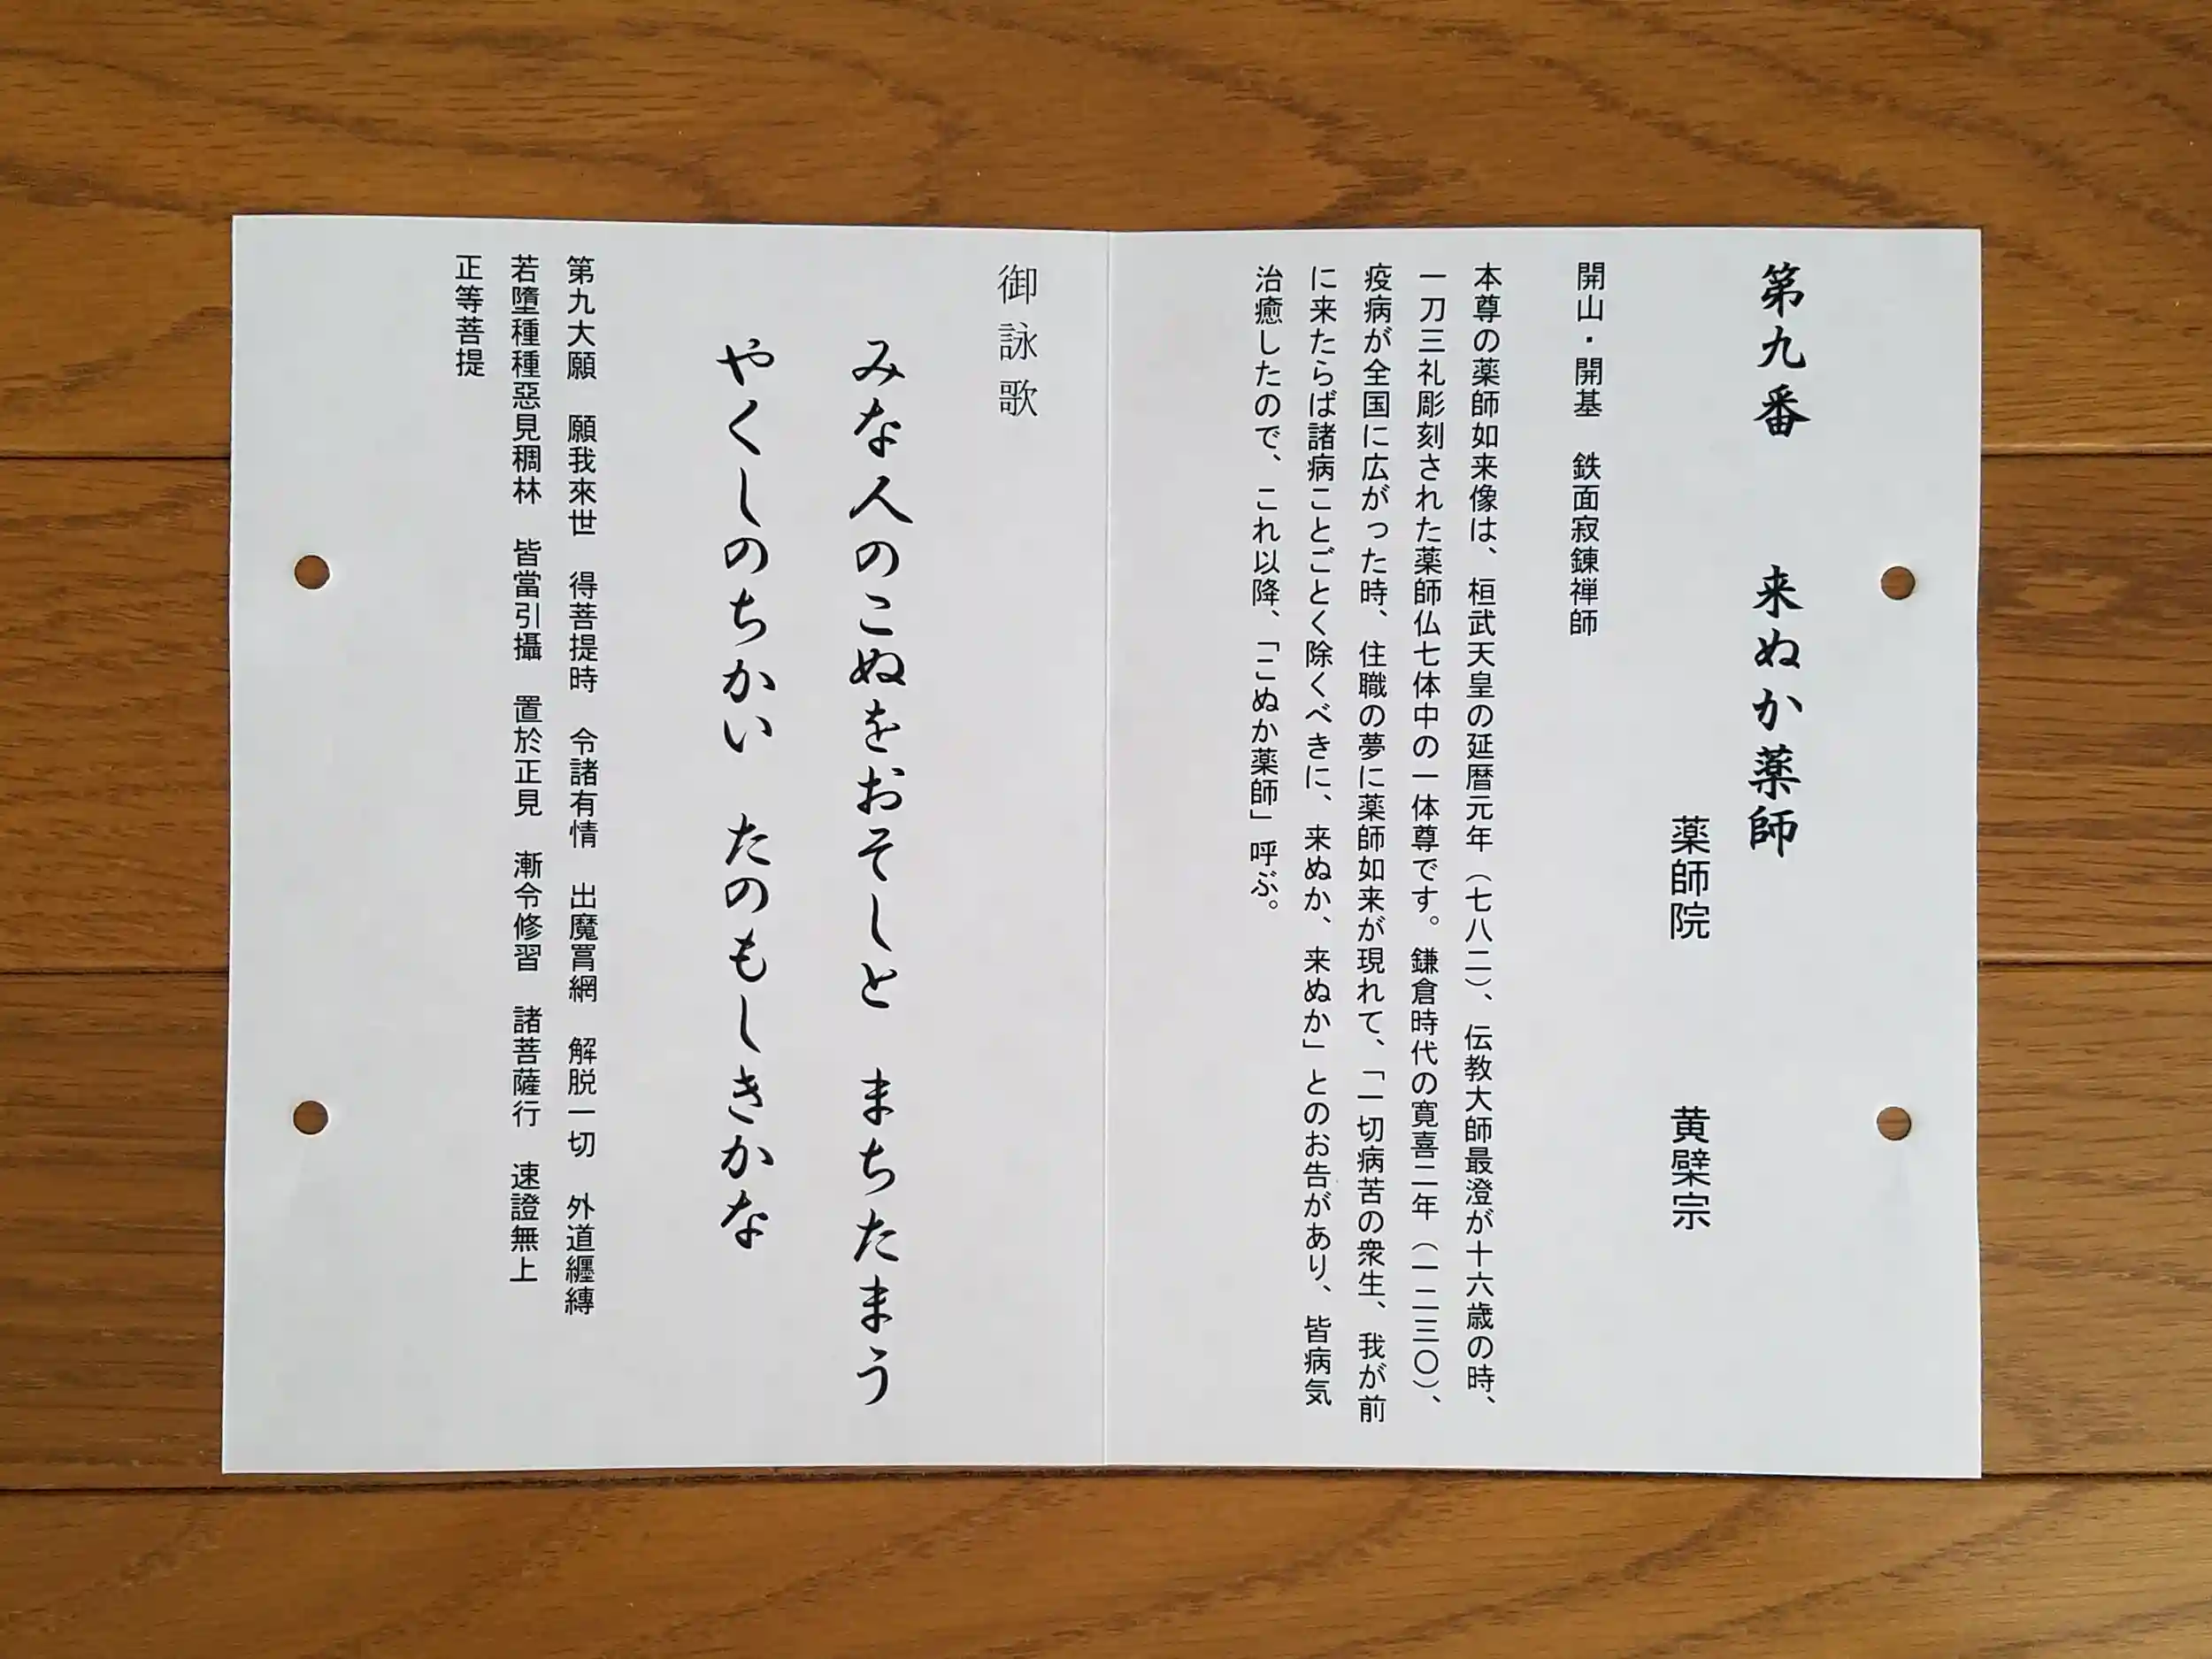 第九番　来ぬか薬師
薬師院　黄檗宗
開山・開基　鉄面寂錬禅師
本尊の薬師如来像は、桓武天皇の延暦元年（七八二）、伝教大師最澄が十六歳の時、
一刀三礼彫刻された薬師仏七体中の一体尊です。鎌倉時代の寛喜二年（一二三〇）、
疫病が全国に広がった時、住職の夢に薬師如来が現れて、「一切病苦の衆生、我が前
に来たらば諸病ことごとく除くべきに、来ぬか、来ぬか」とのお告があり、皆病気
治癒したので、これ以降、「こぬか薬師」呼ぶ。
御詠歌
みな人のこぬをおそしと　まちたまう
やくしのちかい　たのもしきかな
第九大願　願我來世　得菩提時　令諸有情　出魔罥網　解脱一切　外道纒縛
若墮種種惡見稠林　皆當引攝　置於正見　漸令修習　諸菩薩行　速證無上
正等菩提